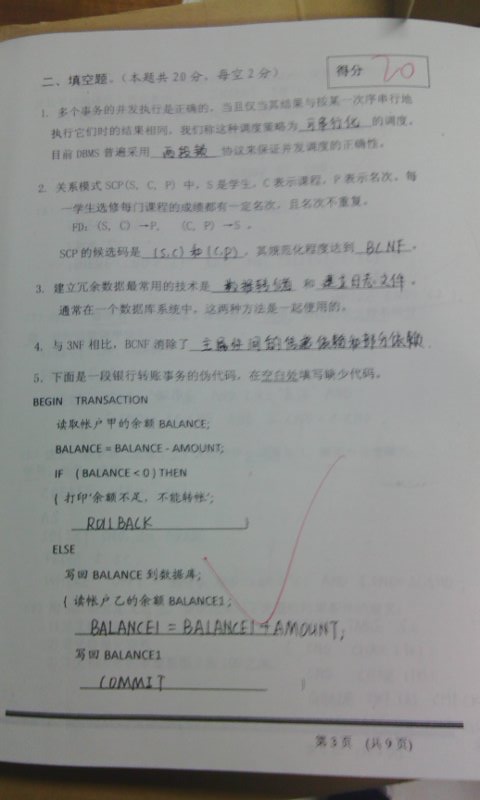 二、填空题。（本题共20分，每空2分）
得分 20
1. 多个事务的并发执行是正确的，当且仅当其结果与按某一次序串行地
执行它们时的结果相同，我们称这种调度策略为 可串行化 的调度。
目前 DBMS 普遍采用 两段锁 协议来保证并发调度的正确性。
2. 关系模式 SCP(S, C, P) 中，S 是学生，C 表示课程，P 表示名次。每
一学生选修每门课程的成绩都有一定名次，且名次不重复。
FD：(S, C) →P， (C, P) →S 。
SCP 的候选码是 (S,C)和(C,P)，其规范化程度达到 BCNF。
3. 建立冗余数据最常用的技术是 数据转储 和 建立日志文件。
通常在一个数据库系统中，这两种方法是一起使用的。
4. 与 3NF 相比，BCNF 消除了 主属性间的传递依赖和部分依赖
5. 下面是一段银行转账事务的伪代码，在空白处填写缺少代码。
BEGIN TRANSACTION
读取帐户甲的余额 BALANCE;
BALANCE = BALANCE - AMOUNT;
IF ( BALANCE < 0 ) THEN
{ 打印'余额不足，不能转帐';
ROLLBACK }
ELSE
写回 BALANCE 到数据库;
{ 读帐户乙的余额 BALANCE1;
BALANCE1 = BALANCE1 + AMOUNT;
写回 BALANCE1
COMMIT }
第 3 页 （共 9 页）